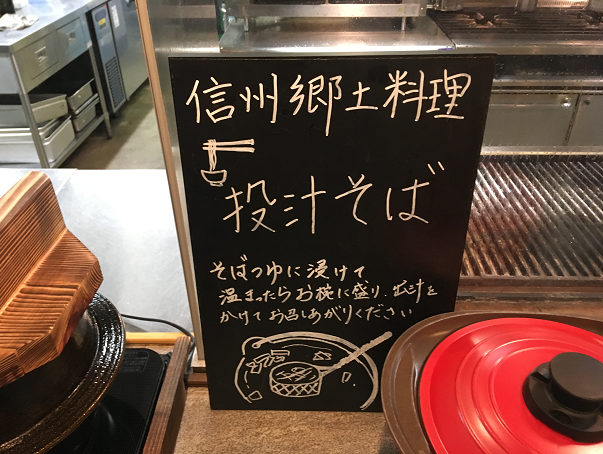 信州郷土料理
投汁そば
そばつゆに浸けて
温まったらお椀に盛り、出汁を
かけてお召しあがりください